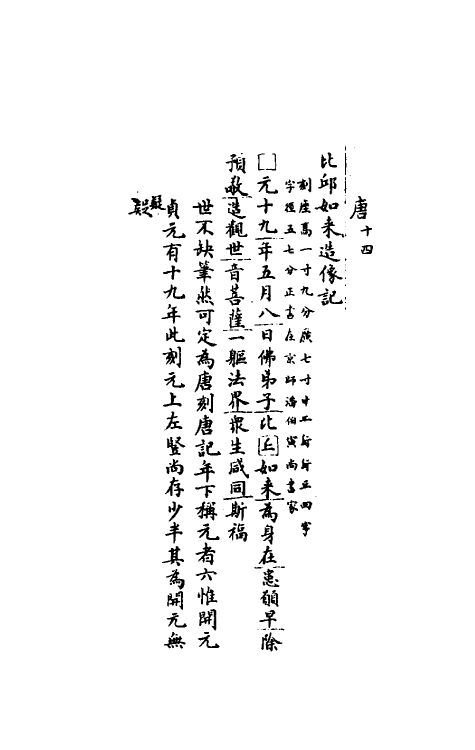 唐十四
比邱如来造像記
刻座高一寸九分廣七寸十二行行三四字
字徑五七分正書在京師潘伯寅尚書家
□元十九年五月八日佛弟子比丘如来為身在患願早除
預敬造觀世音菩薩一軀法界衆生咸同斯福
世不缺筆然可定為唐刻唐記年下稱元者六惟開元
貞元有十九年此刻元上左豎尚存少半其為開元無
疑
疑